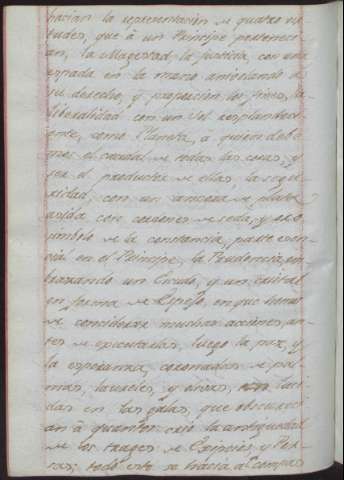 hacían la representación de quatro vir-
tudes, que à un Principe pertenecen
an, la Magestad, la justicia, con una
espada en la mano
su derecho, y proposicion los fines, la
liberalidad con un Sol resplandeci-
ente, como Planeta, à quien debe
mos el caudal de todas las cosas, y
ser el productor de ellas, la segu-
ridad, con un ancora de plata
asida con cordones de seda, y es
simbolo de la constancia, parte esen-
cial en el Principe, la Prudencia, em-
brazando un Escudo, y un cristal
en forma de Espejo, en que hemos
de considerar muchas acciones, an-
tes de executarlas, luego la paz, y
la esperanza, coronadas de pal-
mas, laureles, y olivas, luci-
das en las galas, que obscurecí-
an à quantos creò la antiguedad
de los trages de Egipcios, y Per-
sas; todo esto se hacia al compas